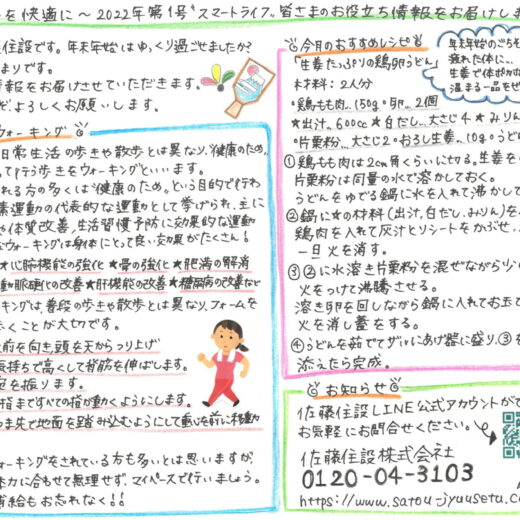 を快適に〜2022年第1号"スマートライフ"皆さまのお役立ち情報をお届けしま
住設です。年末年始はゆっくり過ごせましたか?
まりです。
情報をお届けさせていただきます。
よろしくお願いします。
ウォーキング
日常生活の歩きや散歩とは異なり、"健康のため"
って行う歩きをウォーキングといいます。
れる方の多くは"健康のため"という目的で行わ
素運動の代表的な運動として挙げられ、主に
や体質改善、生活習慣予防に効果的な運動
ウォーキングは身体にとって良い効果がたくさん!
★心肺機能の強化 ★骨の強化 ★肥満の解消
動脈硬化の改善 ★肝機能の改善 ★糖尿病の改善など
キングは、普段の歩きや散歩とは異なり、フォームを
歩くことが大切です。
前を向き、頭を天からつり上げ
気持ちで高くして背筋を伸ばします。
を振ります。
指まですべての指が動くようにします。
ま先で地面を踏み込むようにして重心を前に移動
ウォーキングをされている方も多いとは思いますが
体力に合わせて無理せず、マイペースで行いましょう。
補給もお忘れなく!!
今月のおすすめレシピ
「生姜たっぷりの鶏卵うどん」
材料:2人分
・鶏もも肉…150g・卵…2個
★出汁…600cc ★白だし…大さじ4 ★みりん
・片栗粉…大さじ2・おろし生姜…10g・うどん
年末年始のごちそ
疲れた体に…
生姜で体がポカ
温まる一品をぜ
①鶏もも肉は2cm角くらいに切る。生姜を
片栗粉は同量の水で溶かしておく。
うどんをゆでる鍋に水を入れて沸かして
②鍋に★の材料(出汁、白だし、みりん)を
鶏肉を入れて灰汁とリシートをかざせ、
一旦火を消す。
③②に水溶き片栗粉を混ぜながら少し
火をつけて沸騰させる。
溶き卵を回しながら鍋に入れてお玉で
火を消し蓋をする。
④うどんを茹でてザルにあげ器に盛り、③を
添えたら完成。
お知らせ
佐藤住設LINE公式アカウントがで
お気軽にお問合せください。
佐藤住設株式会社
0120-04-3103
https://www.satou-jyuusetu.co